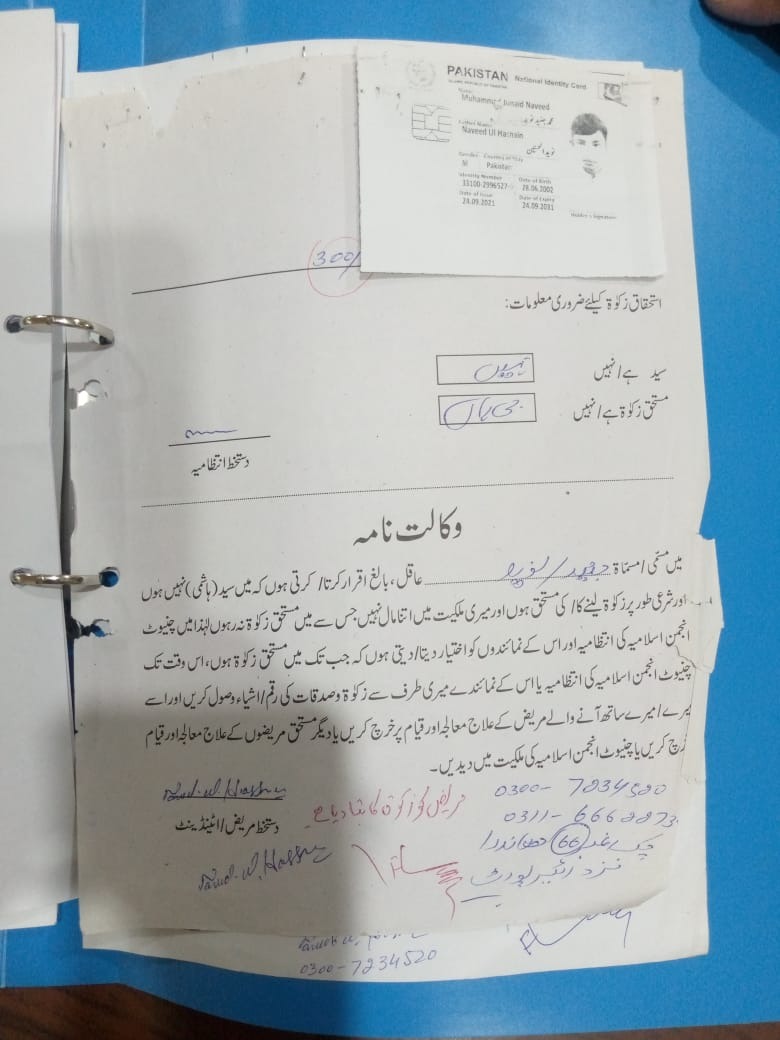 PAKISTAN National Identity Card
ISLAMIC REPUBLIC OF PAKISTAN
Name
Muhammad Junaid Naveed
محمد جنید نوید
Father Name
Naveed Ul Hasnain
نوید الحسنین
Gender Country of Stay
M Pakistan
Identity Number Date of Birth
33100-2996527- 28.06.2002
Date of Issue Date of Expiry
24.09.2021 24.09.2031
Holder's Signature
300/
استحقاق زکوٰۃ کیلئے ضروری معلومات:
سید ہے/نہیں نہیں
مستحق زکوٰۃ ہے/نہیں جی ہاں
دستخط انتظامیہ
وکالت نامہ
میں مسمّی/مسمّاۃ جنید/نوید عاقل، بالغ اقرار کرتا/کرتی ہوں کہ میں سید (ہاشمی) نہیں ہوں
اور شرعی طور پر زکوٰۃ لینے کا/کی مستحق ہوں اور میری ملکیت میں اتنا مال نہیں جس سے میں مستحق زکوٰۃ نہ رہوں لہٰذا میں چنیوٹ
انجمن اسلامیہ کی انتظامیہ اور اس کے نمائندوں کو اختیار دیتا/دیتی ہوں کہ جب تک میں مستحق زکوٰۃ ہوں، اس وقت تک
چنیوٹ انجمن اسلامیہ کی انتظامیہ یا اس کے نمائندے میری طرف سے زکوٰۃ وصدقات کی رقم/اشیاء وصول کریں اور اسے
میرے/میرے ساتھ آنے والے مریض کے علاج معالجہ اور قیام پر خرچ کریں یا دیگر مستحق مریضوں کے علاج معالجہ اور قیام
خرچ کریں یا چنیوٹ انجمن اسلامیہ کی ملکیت میں دیدیں۔
0300-7234520
0311-6662273
مریض کو زکوٰۃ کا بتا دیا ہے
دستخط مریض/اٹینڈینٹ
چک نمبر 66
نزد
0300-7234520